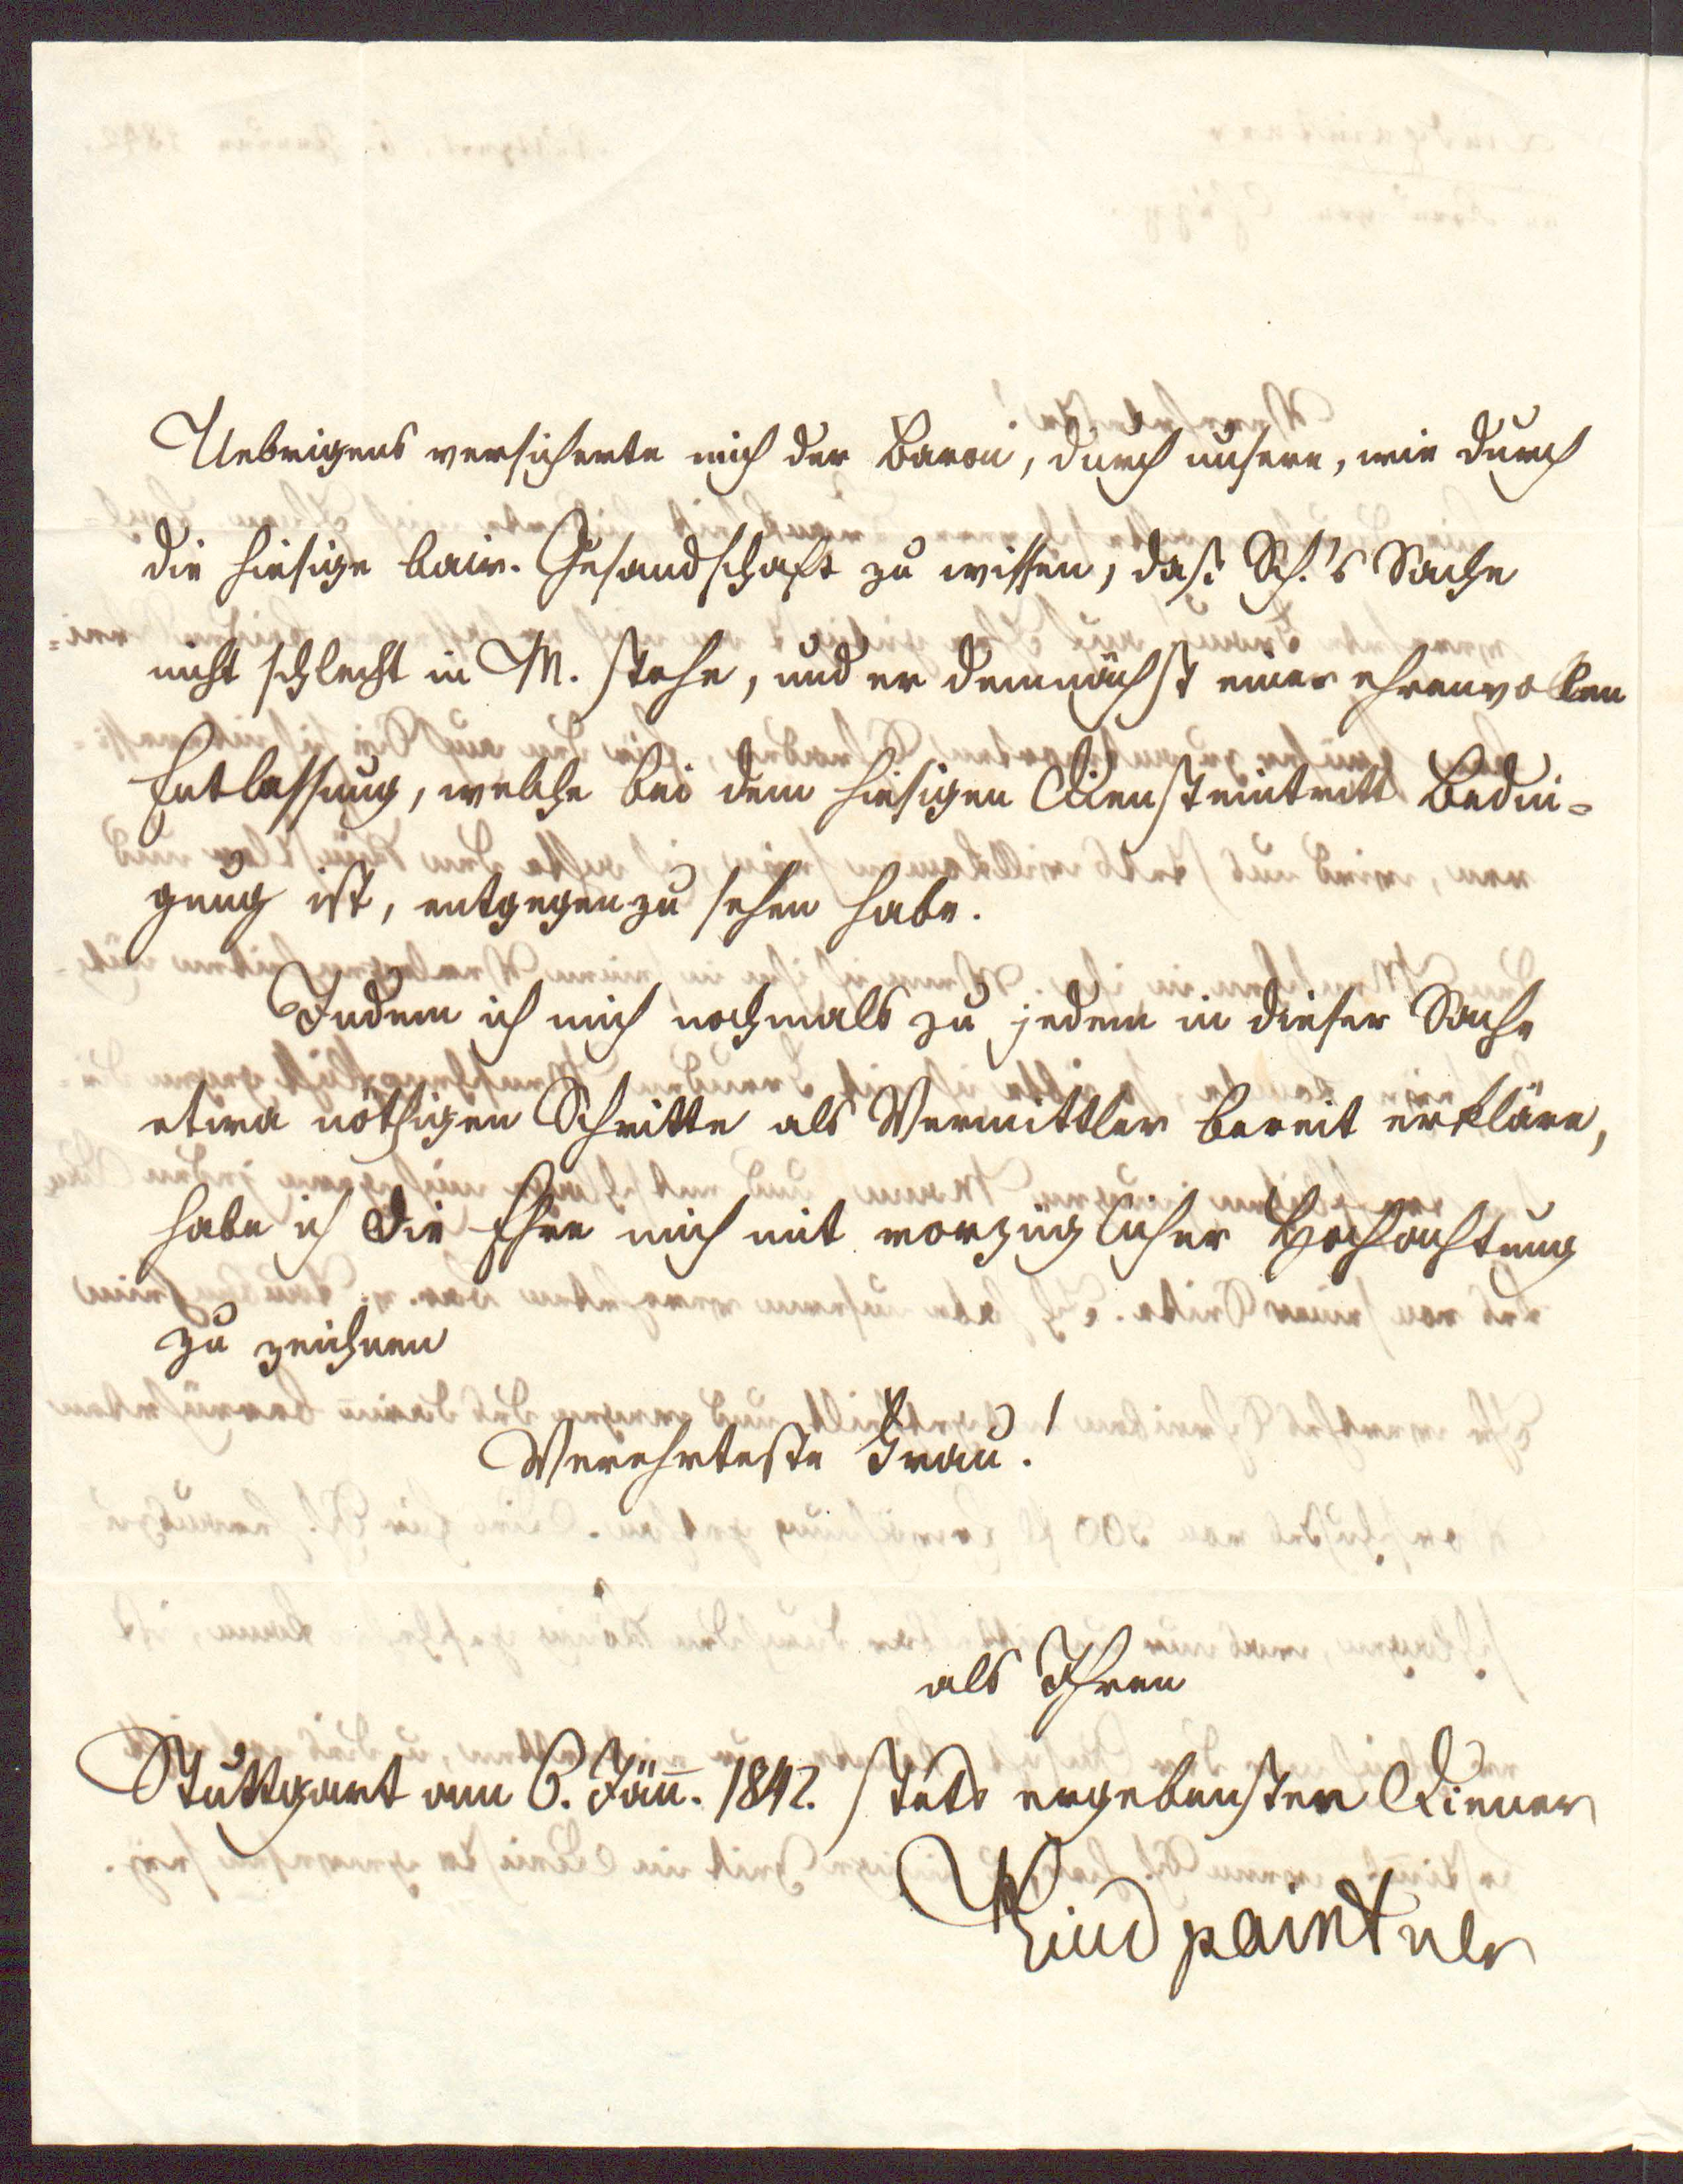 Uebrigens versicherte mich der Baron, durch unsere, wie durch
die hiesige bair. Gesandschaft zu wissen, daß Sch.'s Sache
nicht schlecht in M. stehe, und er demnächst einer ehrenvollen
Entlassung, welche bei dem hiesigen Diensteintritt Bedin=
gung ist, entgegenzusehen habe.
Indem ich mich nochmals zu jedem in dieser Sache
etwa nöthigen Schritte als Vermittler bereit erkläre,
habe ich die Ehre mich mit vorzüglicher Hochachtung
zu zeichnen
Verehrteste Frau!
als Ihren
Stuttgart am 6. Jän̄. 1842. stets ergebensten Diener
Lindpaintner